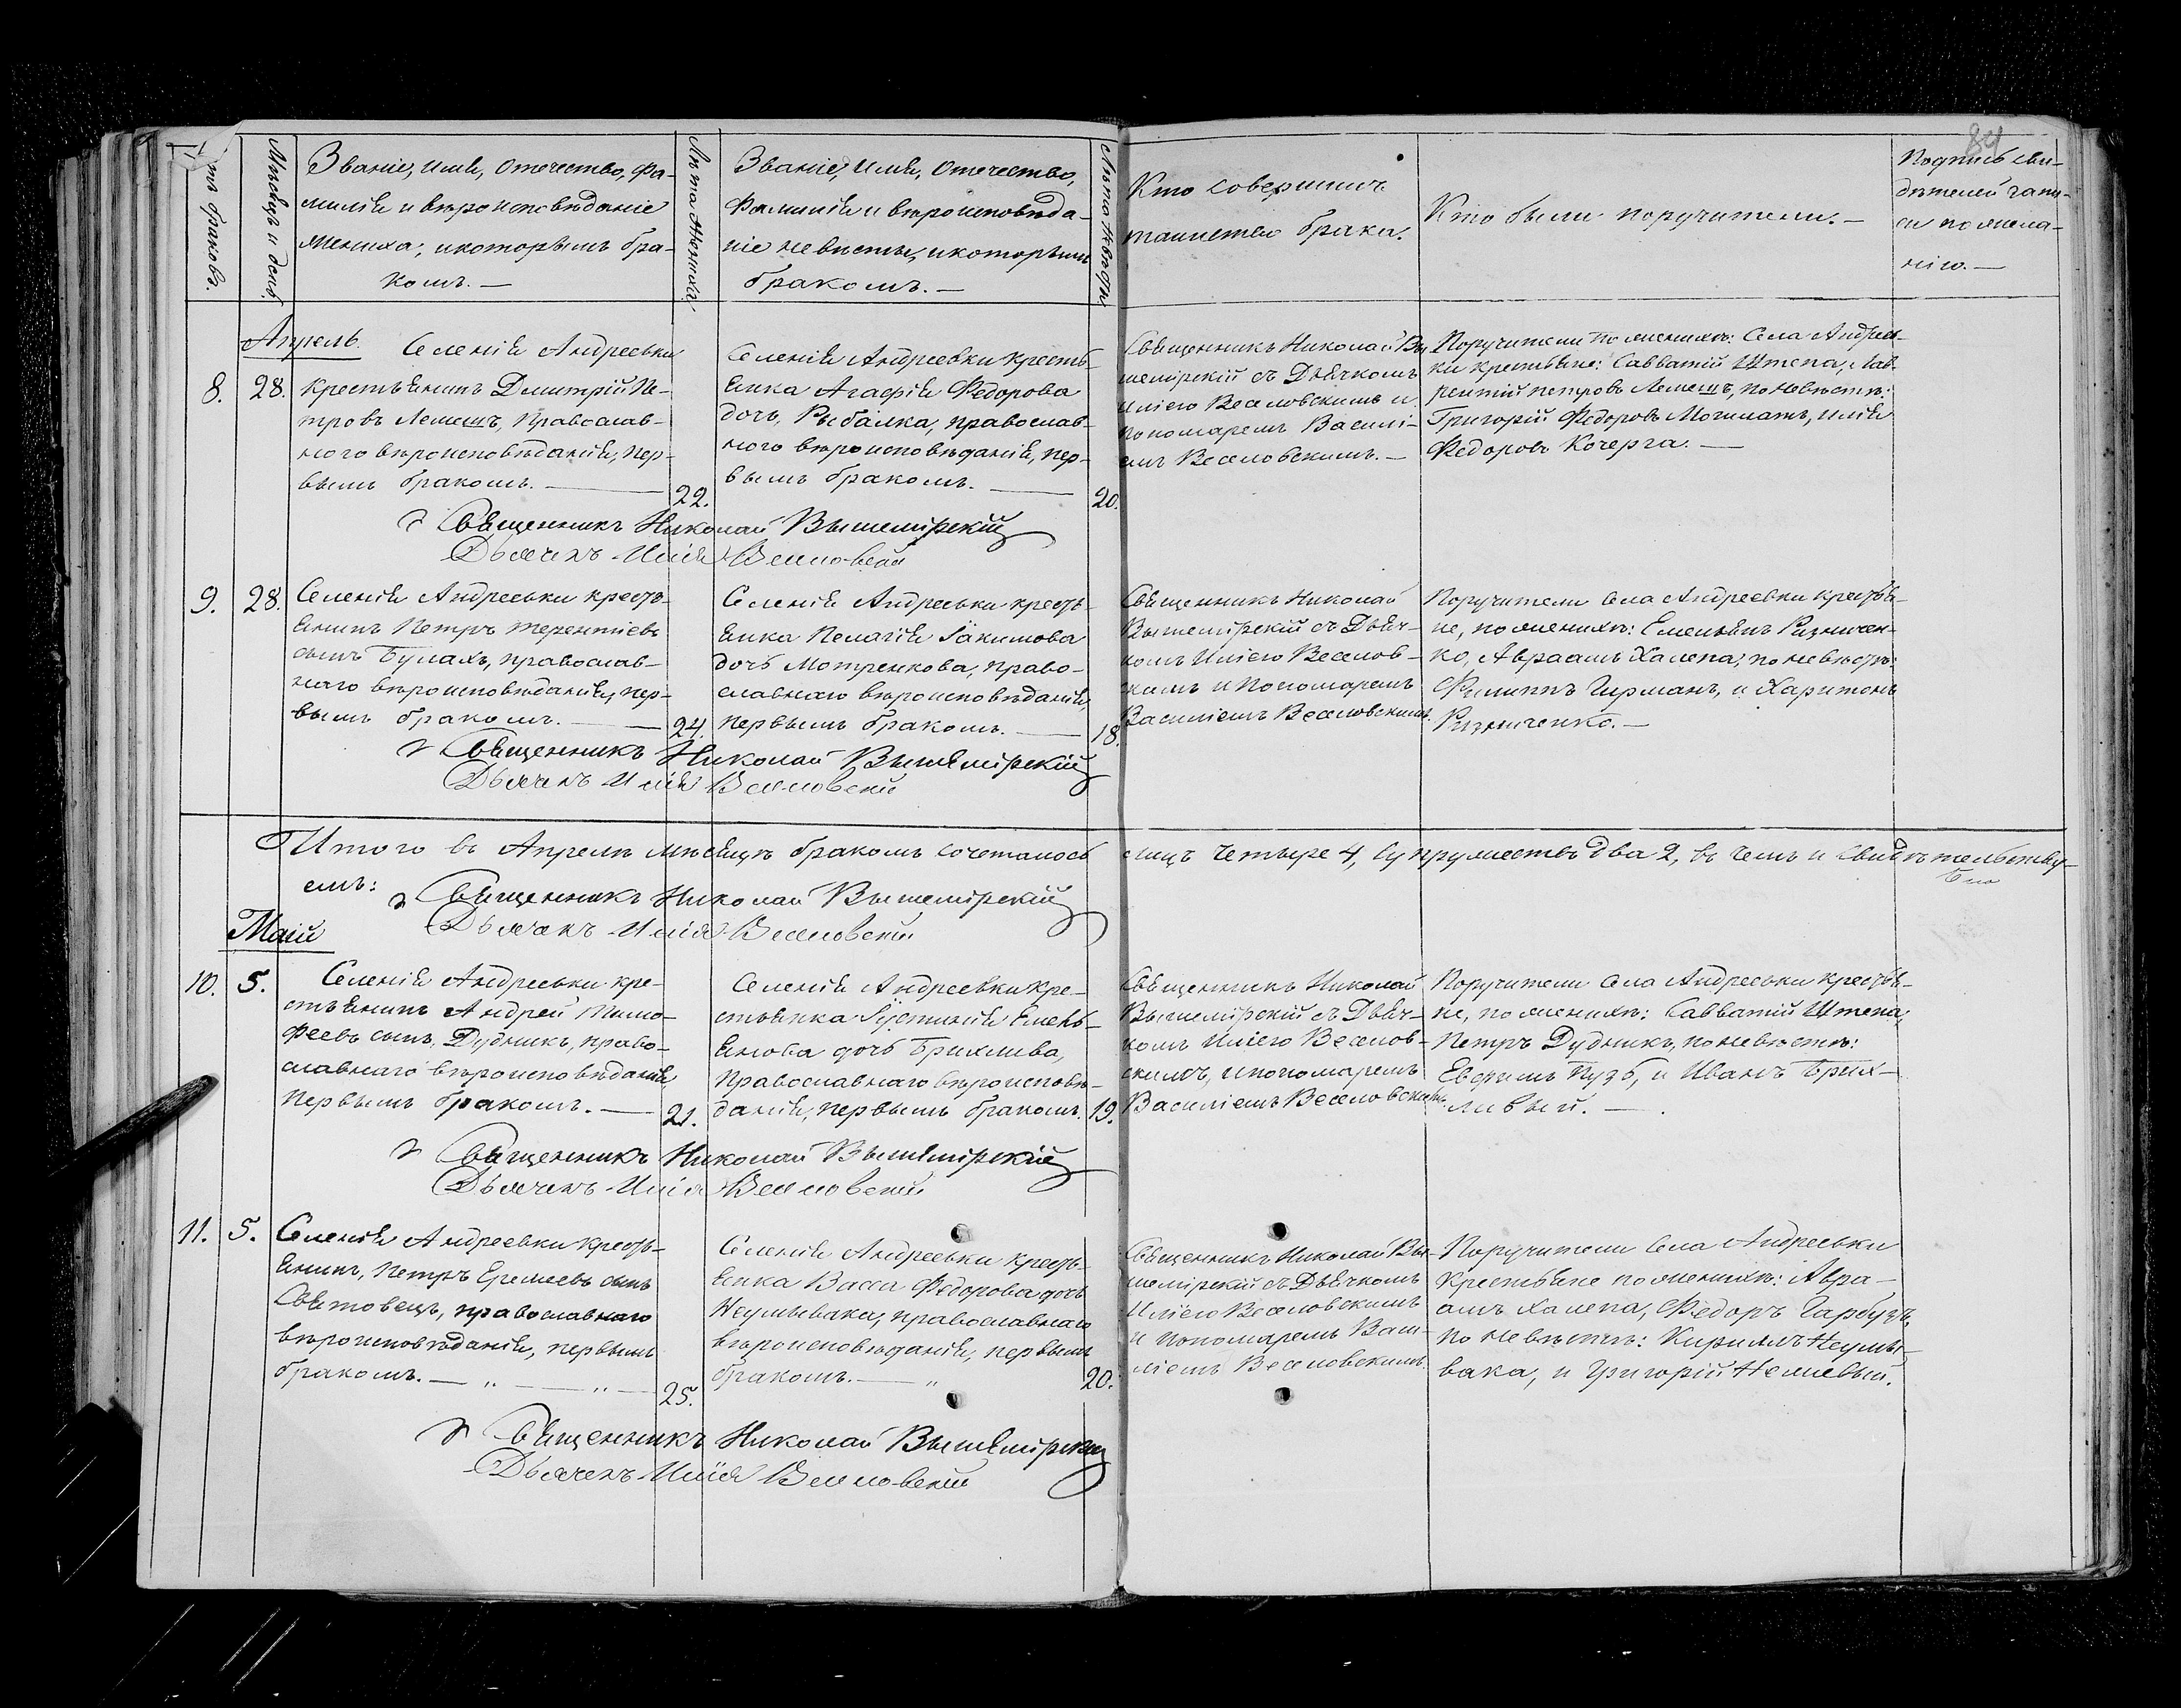 84
Счетъ браковъ.
Мѣсяцъ и день.
Званіе, имя, отечество, фа-
милія и вѣроисповѣданіе
жениха, и которымъ бра-
комъ. —
Лѣта жениха.
Званіе, имя, отечество,
фамилія и вѣроисповѣда-
ніе невѣсты, и которымъ
бракомъ. —
Лѣта невѣсты
Кто совершилъ
таинство брака.
Кто были поручители. —
Подпись сви-
дѣтелей запи-
си по жела-
нію. —
Апрель
8.
28.
Селенія Андреевки
крестьянинъ Димитрій Пе-
тровъ Лемешъ, Православ-
ного вѣроисповѣданія, пер-
вымъ бракомъ. —
22.
Селенія Андреевки кресть-
янка Агафія Федорова
дочь, Рыбалка, православ-
ного вѣроисповѣданія, пер-
вымъ бракомъ. —
20.
Священникъ Николай Вы-
шемірскій съ Дьячкомъ
Иліею Веселовскимъ и
пономаремъ Василі-
емъ Веселовскимъ. —
Поручители по женихѣ: Села Андреев-
ки крестьяне: Савватій Штепа, Лав-
рентій Петровъ Лемешъ, по невѣстѣ:
Григорій Федоровъ Могилатъ, Илія
Федоровъ Кочерга. —
Священникъ Николай Вышемірскій
Дьячекъ Илія Веселовскій
9.
28.
Селенія Андреевки кресть-
янинъ Петръ Терентіевъ
сынъ Булахъ, православ-
наго вѣроисповѣданія, пер-
вымъ бракомъ. —
24.
Селенія Андреевки кресть-
янка Пелагія Іакимова
дочь Мотренкова, право-
славнаго вѣроисповѣданія
первымъ бракомъ. —
18.
Священникъ Николай
Вышемірскій съ Дьяч-
комъ Иліею Веселов-
скимъ и Пономаремъ
Василіемъ Веселовскимъ.
Поручители села Андреевки крестья-
не, по женихѣ: Емельянъ Ризничен-
ко, Авраамъ Халепа, по невѣстѣ:
Филиппъ Гирманъ, и Харитонъ
Ризниченко. —
Священникъ Николай Вышемірскій
Дьячекъ Илія Веселовскій
Итого въ Апрелѣ мѣсяцѣ бракомъ сочеталось лицъ четыре 4, супружествъ два 2, въ чемъ и свидѣтельству-
емъ:
Священникъ Николай Вышемірскій
Дьячекъ Илія Веселовскій
Маій
10.
5.
Селенія Андреевки кре-
стьянинъ Андрей Тимо-
феевъ сынъ, Дудникъ, право-
славнаго вѣроисповѣданія,
первымъ бракомъ. —
21.
Селенія Андреевки кре-
стьянка Іустинія Емель-
янова дочь Брихлива,
Православнаго вѣроисповѣ-
данія, первымъ бракомъ.
19.
Священникъ Николай
Вышемірскій съ Дьяч-
комъ Иліею Веселов-
скимъ, и пономаремъ
Василіемъ Веселовскимъ.
Поручители села Андреевки крестья-
не, по женихѣ: Савватій Штепа,
Петръ Дудникъ, по невѣстѣ:
Евфимъ Пузъ, и Иванъ Брих-
ливый. —
Священникъ Николай Вышемірскій
Дьячекъ Илія Веселовскій
11.
5.
Селенія Андреевки кресть-
янинъ, Петръ Еремеевъ сынъ
Свѣтовецъ, православнаго
вѣроисповѣданія, первымъ
бракомъ. — „ — „ —
25.
Селенія Андреевки кресть-
янка Васса Федорова дочь
Неумывака, православнаго
вѣроисповѣданія, первымъ
бракомъ. — „
20.
Священникъ Николай Вы-
шемірскій съ Дьячкомъ
Иліею Веселовскимъ
и Пономаремъ Васи-
ліемъ Веселовскимъ.
Поручители села Андреевки
крестьяне по женихѣ: Авра-
амъ Халепа, Федоръ Гарбузъ,
по невѣстѣ: Кириллъ Неумы-
вака, и Григорій Нежевый.
Священникъ Николай Вышемірскій
Дьячекъ Илія Веселовскій